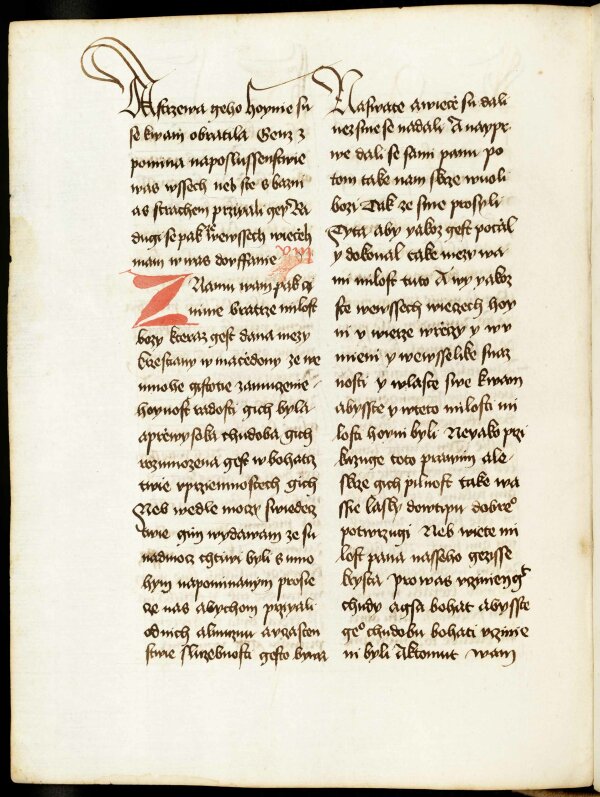 A strzewa geho hoynie su
se kwam obratila Genz z
pomina naposlussenstwie
was wssech neb ste s bazni
as strachem przigali gey Ra
dugi se pak ze wewssech wiecech
mam w was dorffanie
Znamu wam pak czi
nime bratrze milost
bozy kteraz gest dana mezy
krzestany w macedony ze we
mnohe gistotie zamucenie
hoynost radosti gich byla
aprzewysoka chudoba gich
rozmnozena gest w bohatz
twie vprziemnostech gich
Neb wedle moczy swiedecz
twie gim wydawam ze su
nadmocz chtiwi byli s mno
hym napominanym prosie
ce nas abychom przigali
odnich almuznu a vczasten
stwie sluzebnosti gesto bywa
Naswate awiece su dali
nez sme se nadali A nayprw
we dali se sami panu po
tom take nam skrze wuoli
bozi Tak ze sme prosyli
Tyta aby yakoz gest poczal
y dokonal take mezy wa
mi milost tuto A wy yakoz
ste wewssech wiecech hoy
ni v wierze wrzeczy y w v
mieni y wewsselike snaz
nosti y wlasce swe kwam
abysste y wteto milosti mi
losti hoyni byli Neyako przi
kazuge toto prawim ale
skrze gich pilnost take wa
ssie lasky dowtipu dobreo
potwrzugi Neb wiete mi
lost pana nasseho gezisse
krysta Pro was vczinien gt
chudy agsa bohat abysste
geo chudobu bohati vczinie
ni byli Aktomut wam